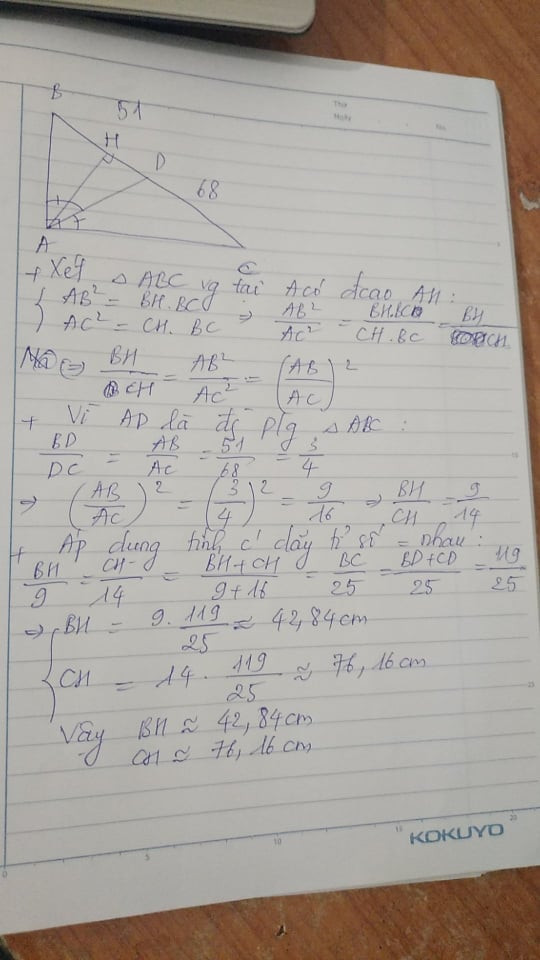 Thứ
Ngày
No.
B
51
H
D
68
A
C
+ Xét △ ABC vg tại A có đcao AH :
{ AB² = BH.BC
AC² = CH. BC ⇒ AB²/AC² = BH.BC/CH.BC = BH/CH
⇒ BH/CH = AB²/AC² = (AB/AC)²
+ Vì AD là đg p/g △ ABC :
BD/DC = AB/AC = 51/68 = 3/4
⇒ (AB/AC)² = (3/4)² = 9/16 ⇒ BH/CH = 9/14
+ Áp dụng tính c' dãy tỉ số = nhau :
BH/9 = CH/14 = BH+CH/9+16 = BC/25 = BD+CD/25 = 119/25
⇒ { BH = 9. 119/25 ≈ 42,84cm
CH = 14 . 119/25 ≈ 76,16cm
Vậy BH ≈ 42,84cm
CH ≈ 76,16cm
0 5 10 15 20
KOKUYO